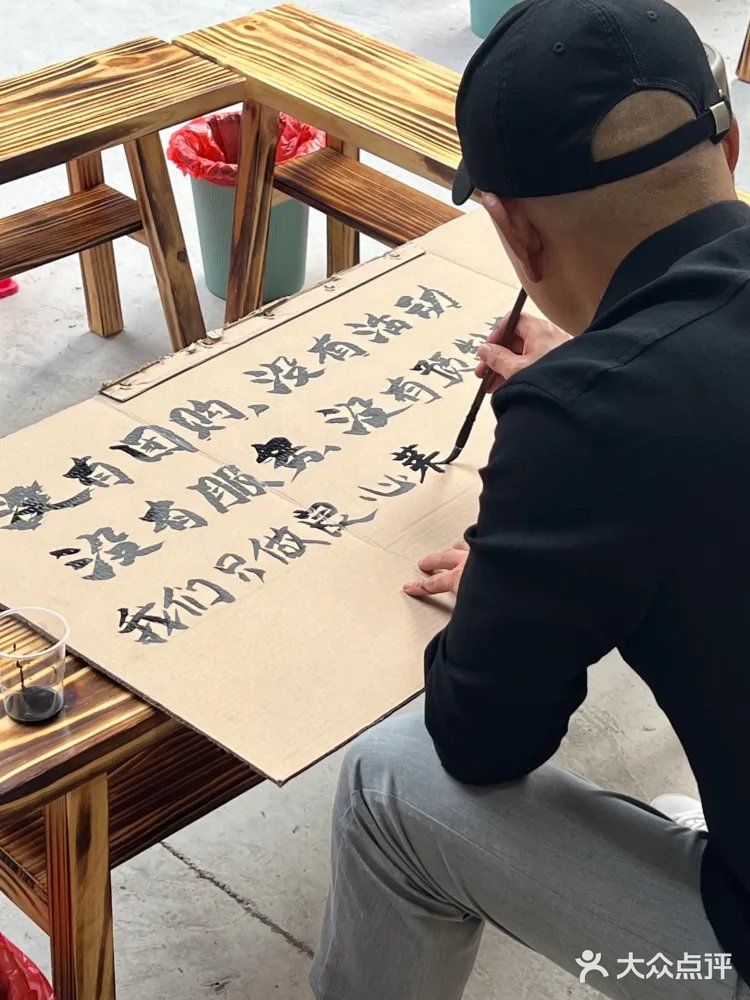 没有团购、没有活动
没有服务、没有预制
我们只做良心菜
大众点评